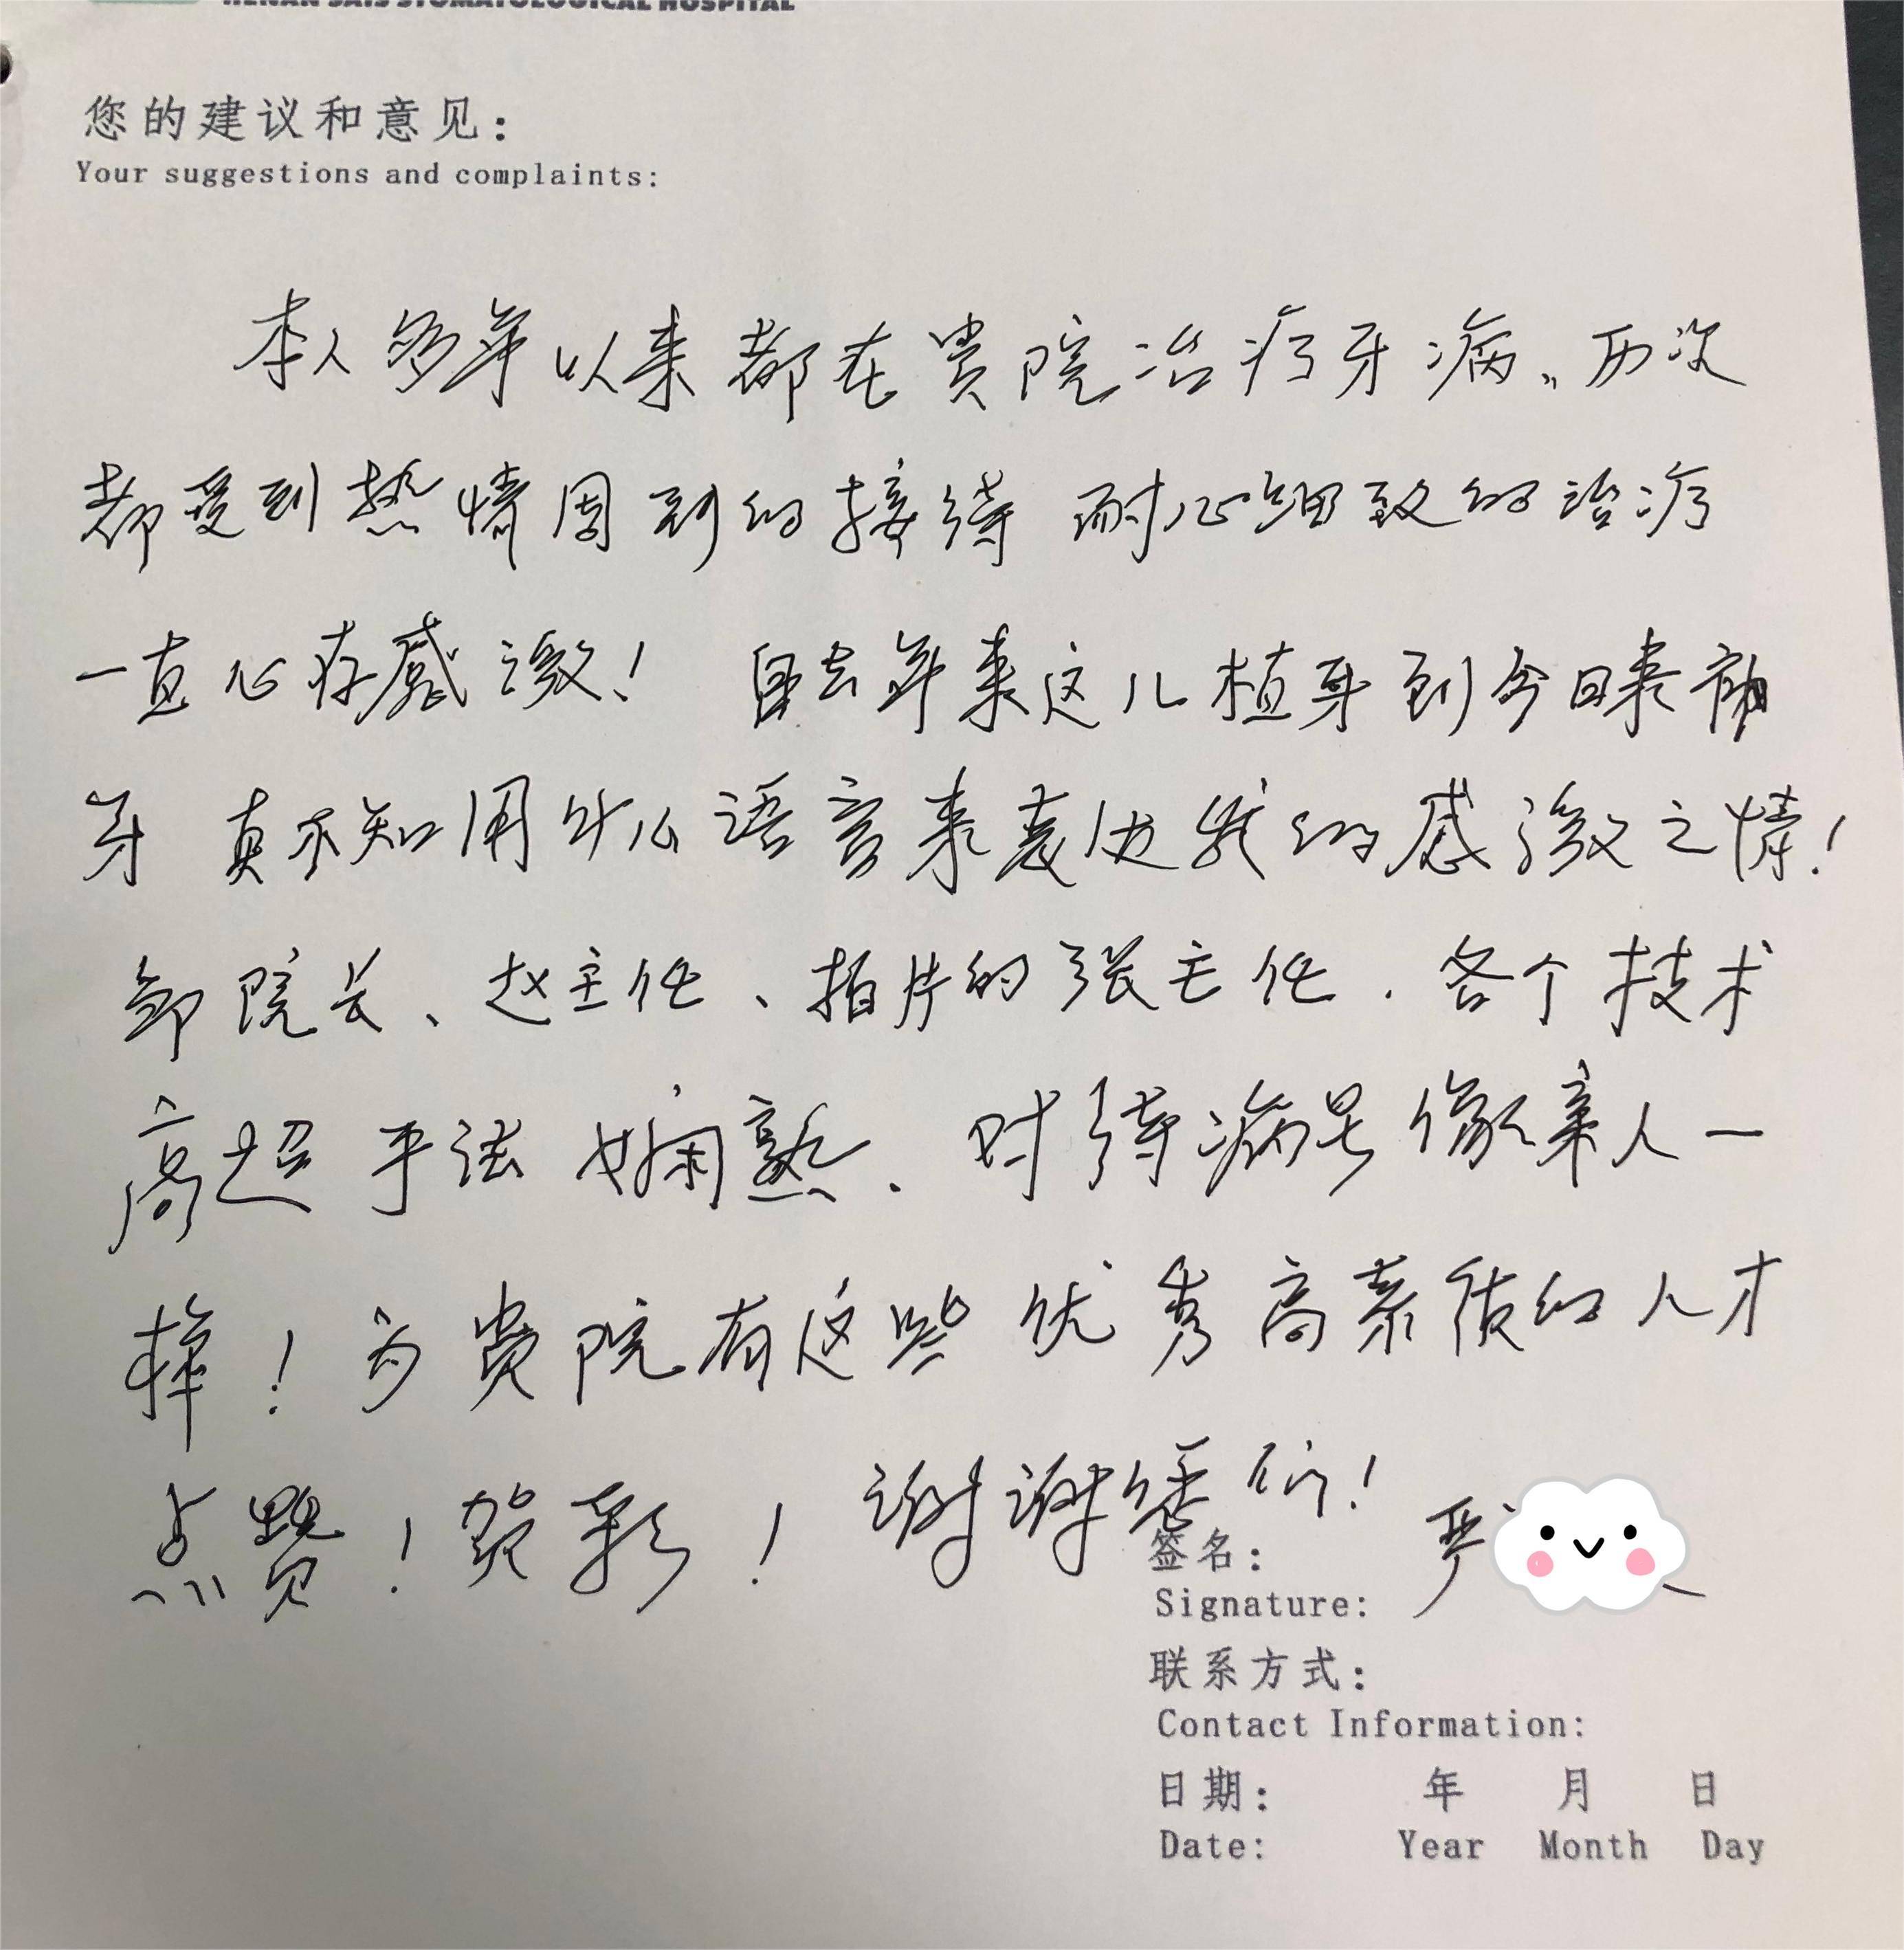 HENAN SAIS STOMATOLOGICAL HOSPITAL
您的建议和意见：
Your suggestions and complaints:
本人多年以来都在贵院治疗牙病，历次
都受到热情周到的接待 耐心细致的治疗
一直心存感激！ 自去年来这儿植牙到今日来补
牙 真不知用什么语言来表达我的感激之情！
院长、赵主任、拍片的张主任．各个技术
高超 手法娴熟．对待病号像亲人一
样！为贵院有这些优秀高素质的人才
点赞！贺彩！谢谢您们！
签名： 严
Signature:
联系方式：
Contact Information:
日期： 年 月 日
Date: Year Month Day